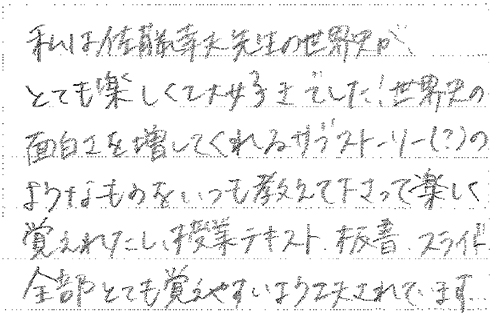 私は佐藤幸夫先生の世界史が、
とても楽しくて大好きでした！世界史の
面白さを増してくれるサブストーリー(?)の
ようなものをいつも教えて下さって楽しく
覚えれたし、授業テキスト、板書、スライド
全部とても覚えやすいよう工夫されています。